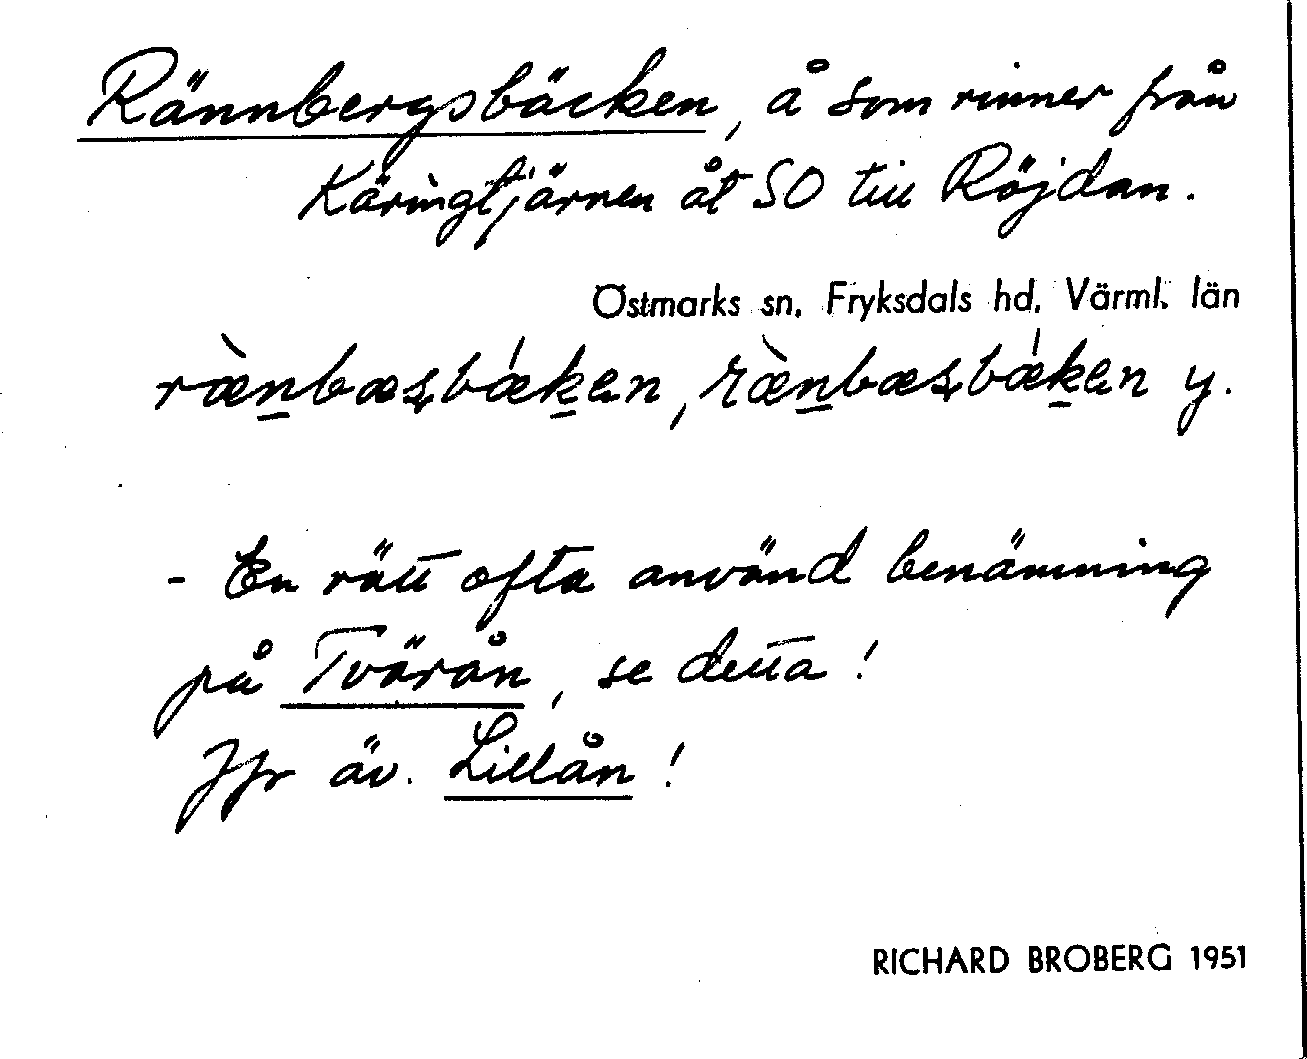 Rännbergsbäcken, å som rinner från
Käringtjärnen åt SO till Röjdan.
Östmarks sn, Fryksdals hd, Värml. län
y.
- En rätt ofta använd benämning
på Tvärån, se detta!
Jfr äv. Lillån!
RICHARD BROBERG 1951